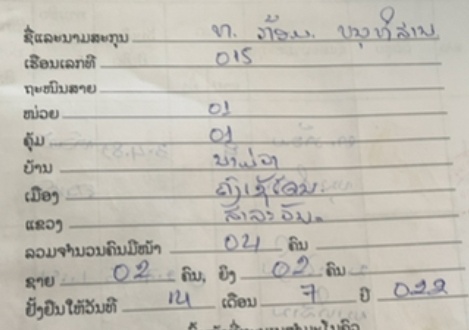 ຊື່ແລະນາມສະກຸນ ທ. ກ້ອນ
ເຮືອນເລກທີ 015
ຖະໜົນສາຍ
ໜ່ວຍ 01
ຄຸ້ມ 01
ບ້ານ
ເມືອງ ຄົງເຊໂດນ
ແຂວງ ສາລະວັນ
ລວມຈຳນວນຄົນມີໜ້າ 04 ຄົນ
ຊາຍ 02 ຄົນ, ຍິງ 02 ຄົນ
ຢັ້ງຢືນໃຫ້ວັນທີ 14 ເດືອນ 7 ປີ 022